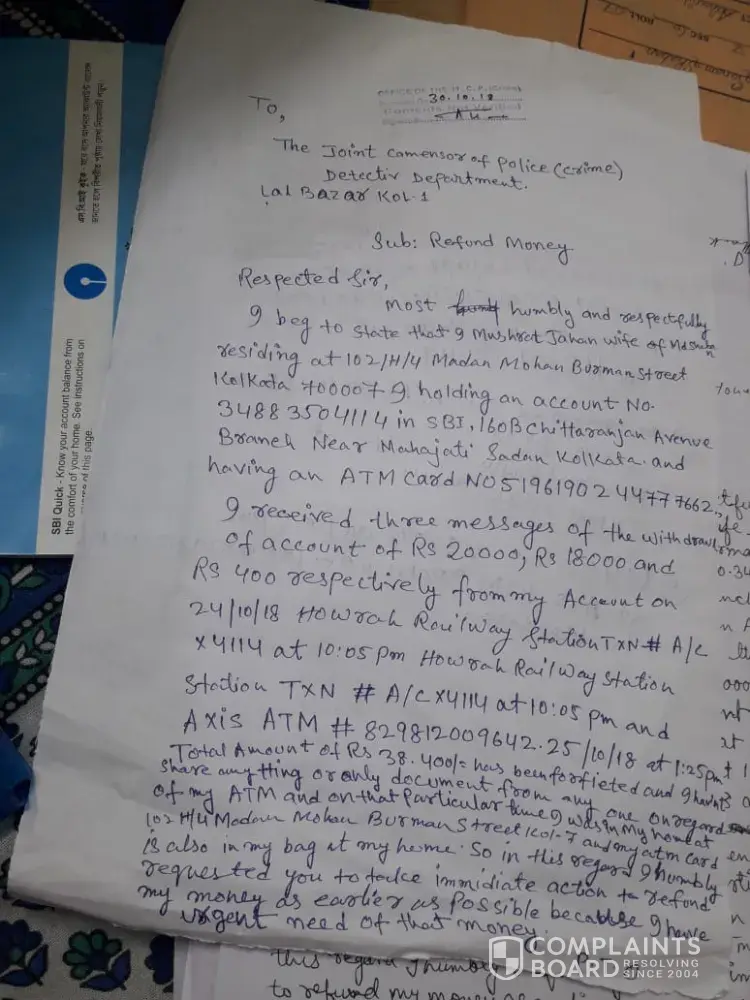 30.10.18
To,
The Joint comensor of Police (crime)
Detectiv Department.
Lal Bazar Kol-1
Sub: Refund Money
Respected Sir,
most humbly and respectfully
I beg to state that I Mushrat Jahan wife of Md
residing at 102/H/4 Madan Mohan Burman Street
Kolkata 700007 I holding an account No.
34883504114 in SBI, 160B Chittaranjan Avenue
Branch Near Mahajati Sadan Kolkata. and
having an ATM Card NO 5196190244777662.
I received three messages of the withdraw
of account of Rs 20000, Rs 18000 and
Rs 400 respectively from my Account on
24/10/18 Howrah Railway Station TXN # A/C
X4114 at 10:05 pm Howrah Railway Station
Station TXN # A/C X4114 at 10:05 pm and
AXIS ATM # 829812009642. 25/10/18 at 1:25pm
Total Amount of Rs 38.400/= has been forfieted and I havnt
share anything or only document from any one on regard
of my ATM and on that particular time I was in My home at
102 H/4 Madan Mohan Burman Street Kol-7 and my atm card
is also in my bag at my home. So in this regard I humbly
requested you to take immidiate action to refund
my money as earlier as Possible because I have
urgent need of that money.
this regard I humbly
to refund my money as
SBI Quick - Know your account balance from
the comfort of your home. See instructions on
of this page.
COMPLAINTS
BOARD
RESOLVING
SINCE 2004